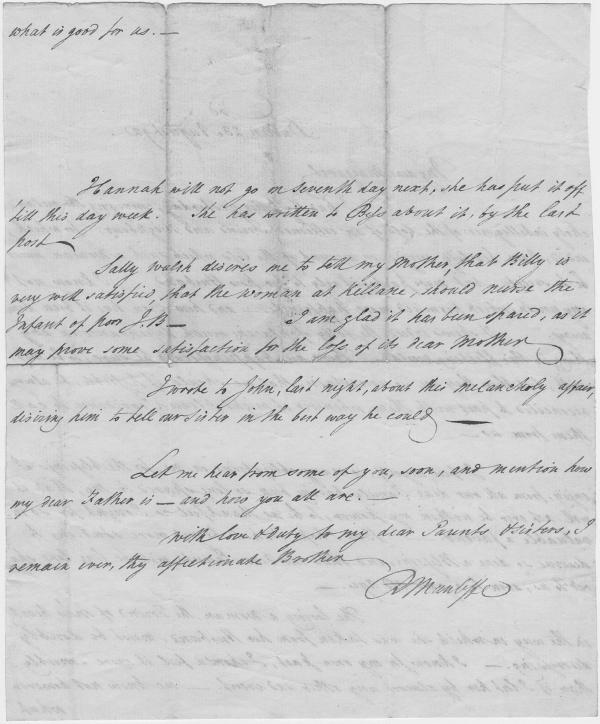 what is good for us. —
Hannah will not go on seventh day next, she has put it off
'till this day week. She has written to Bess about it, by the last
post
Sally Walsh desires me to tell my Mother, that Billy is
very well satisfied, that the woman at Killane, should nurse the
Infant of poor J. B — I am glad it has been spared, as it
may prove some satisfaction for the loss of its dear Mother
I wrote to John, last night, about this melancholy affair,
desiring him to tell our sister in the best way he could —
Let me hear from some of you, soon, and mention how
my dear Father is — and how you all are. —
with love & duty to my dear Parents & sisters, I
remain ever, thy affectionate Brother